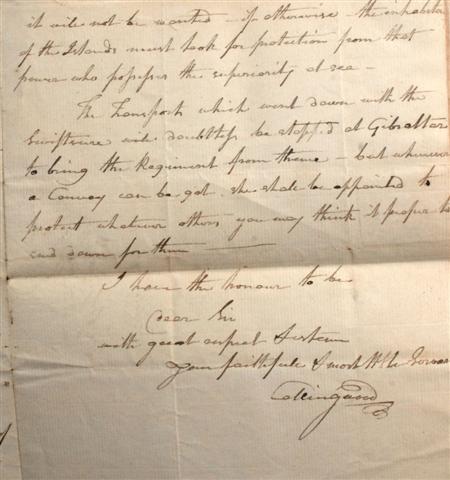 it will not be wanted – if otherwise – the inhabita
of the Islands must look for protection from that
power who possesses the superiority at sea –
The Transports which went down with the
Swiftsure will doubtless be stopped at Gibraltar
to bring the Regiment from thence – but whenever
a Convoy can be got she shall be appointed to
protect whatever others you may think it proper to
send down for them
I have the honour to be
Dear Sir
with great respect & esteem
your faithfull & most Hble Servan
Collingwood